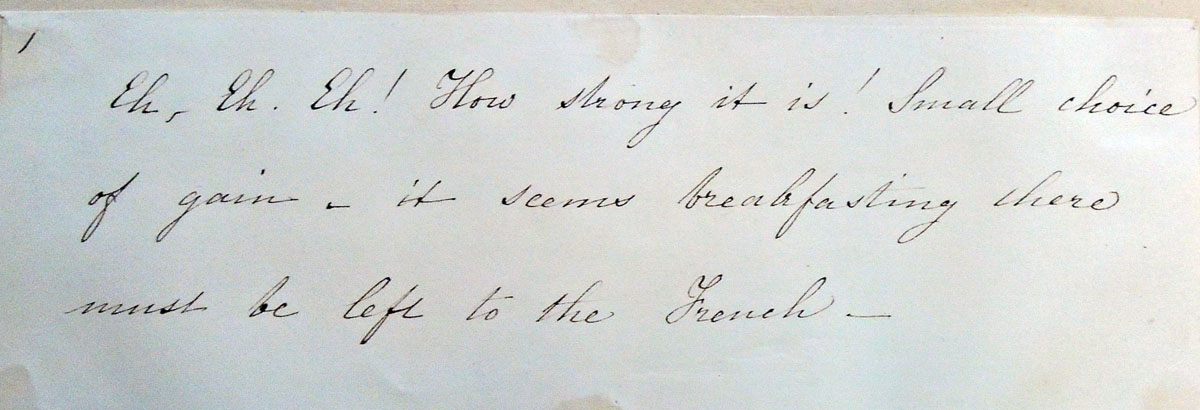 1
Eh, Eh. Eh! How strong it is! Small choice
of gain - it seems breakfasting there
must be left to the French -